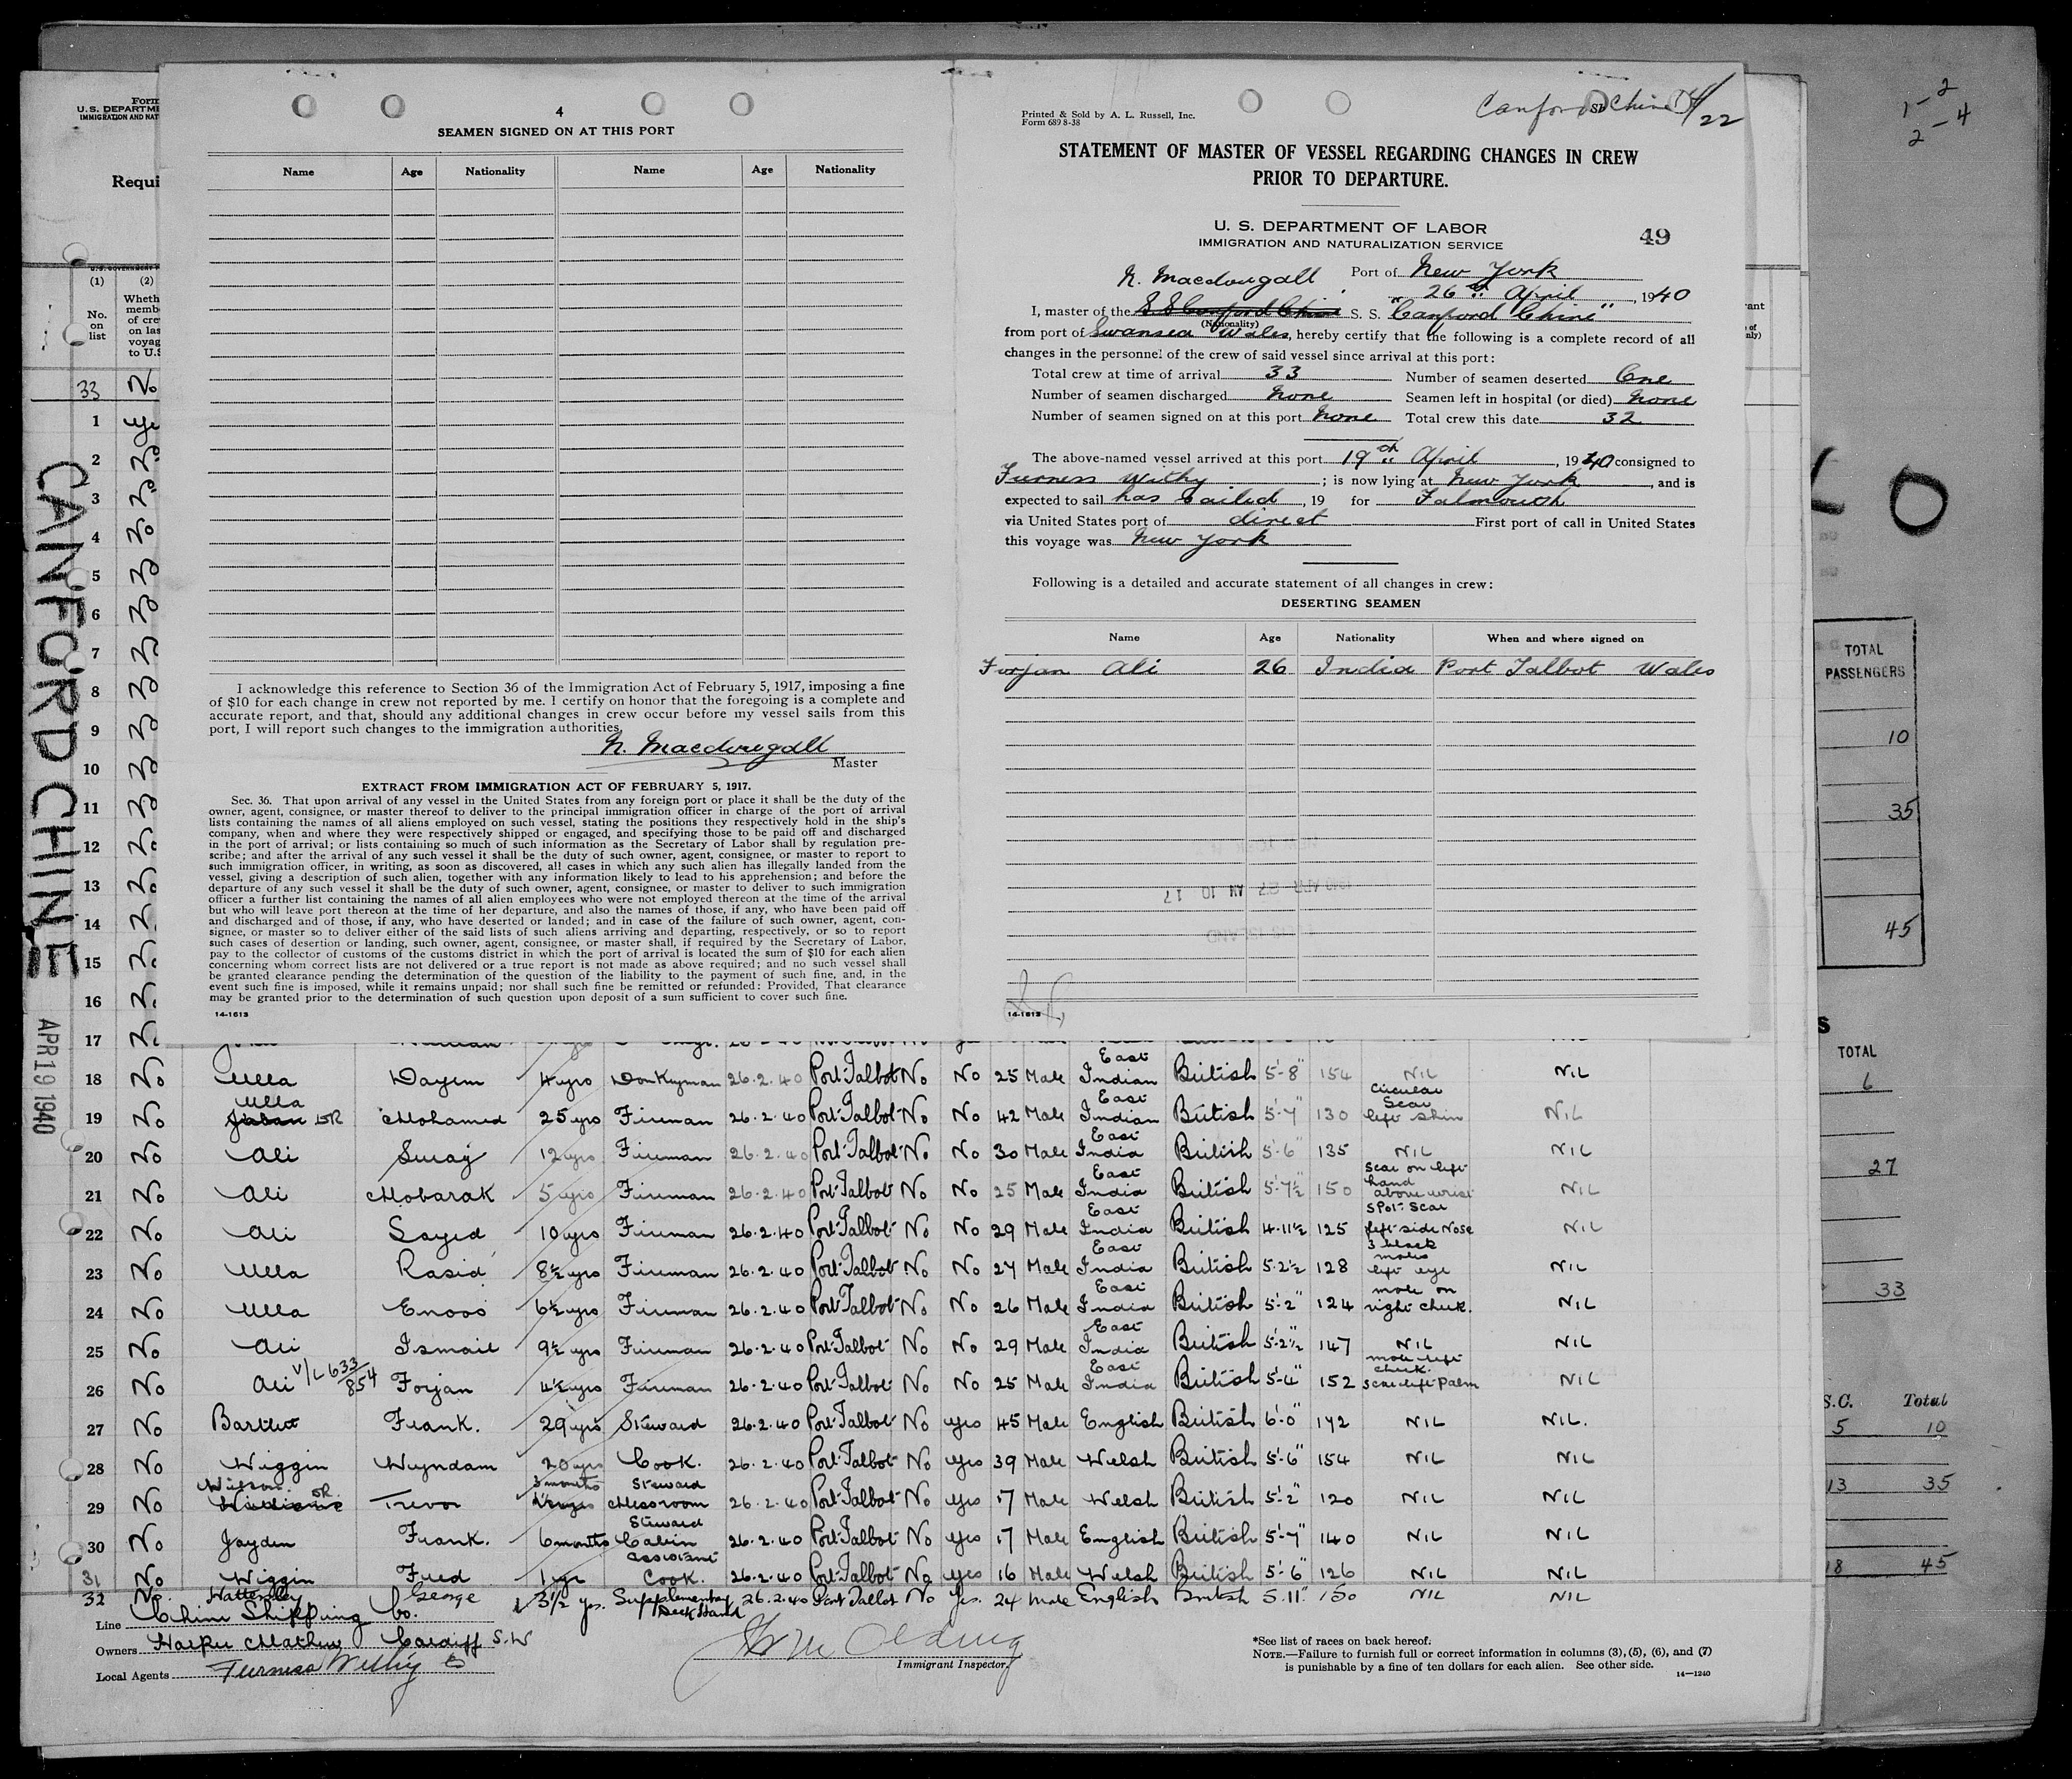 Form
U. S. DEPARTME
IMMIGRATION AND NAT
Requi
(1) (2)
No. on list
Wheth memb of cre on las voyag to U.S
33 No
1 Ye
2
3
4
5
6
7
8
9
10
11
12
13
14
15
16
17
CANFORD CHINE
APR 19 1940
4
SEAMEN SIGNED ON AT THIS PORT
Name Age Nationality Name Age Nationality
I acknowledge this reference to Section 36 of the Immigration Act of February 5, 1917, imposing a fine
of $10 for each change in crew not reported by me. I certify on honor that the foregoing is a complete and
accurate report, and that, should any additional changes in crew occur before my vessel sails from this
port, I will report such changes to the immigration authorities.
N. Macdougall
Master
EXTRACT FROM IMMIGRATION ACT OF FEBRUARY 5, 1917.
Sec. 36. That upon arrival of any vessel in the United States from any foreign port or place it shall be the duty of the
owner, agent, consignee, or master thereof to deliver to the principal immigration officer in charge of the port of arrival
lists containing the names of all aliens employed on such vessel, stating the positions they respectively hold in the ship's
company, when and where they were respectively shipped or engaged, and specifying those to be paid off and discharged
in the port of arrival; or lists containing so much of such information as the Secretary of Labor shall by regulation pre-
scribe; and after the arrival of any such vessel it shall be the duty of such owner, agent, consignee, or master to report to
such immigration officer, in writing, as soon as discovered, all cases in which any such alien has illegally landed from the
vessel, giving a description of such alien, together with any information likely to lead to his apprehension; and before the
departure of any such vessel it shall be the duty of such owner, agent, consignee, or master to deliver to such immigration
officer a further list containing the names of all alien employees who were not employed thereon at the time of the arrival
but who will leave port thereon at the time of her departure, and also the names of those, if any, who have been paid off
and discharged and of those, if any, who have deserted or landed; and in case of the failure of such owner, agent, con-
signee, or master so to deliver either of the said lists of such aliens arriving and departing, respectively, or so to report
such cases of desertion or landing, such owner, agent, consignee, or master shall, if required by the Secretary of Labor,
pay to the collector of customs of the customs district in which the port of arrival is located the sum of $10 for each alien
concerning whom correct lists are not delivered or a true report is not made as above required; and no such vessel shall
be granted clearance pending the determination of the question of the liability to the payment of such fine, and, in the
event such fine is imposed, while it remains unpaid; nor shall such fine be remitted or refunded: Provided, That clearance
may be granted prior to the determination of such question upon deposit of a sum sufficient to cover such fine.
14-1613
Printed & Sold by A. L. Russell, Inc.
Form 689 8-38
Canford Chine
STATEMENT OF MASTER OF VESSEL REGARDING CHANGES IN CREW
PRIOR TO DEPARTURE.
U. S. DEPARTMENT OF LABOR
IMMIGRATION AND NATURALIZATION SERVICE
49
N. Macdougall Port of New York
26th April, 1940
I, master of the S S Canford Chine S. S. "Canford Chine"
(Nationality)
from port of Swansea Wales, hereby certify that the following is a complete record of all
changes in the personnel of the crew of said vessel since arrival at this port:
Total crew at time of arrival 33 Number of seamen deserted One
Number of seamen discharged None Seamen left in hospital (or died) None
Number of seamen signed on at this port None Total crew this date 32
The above-named vessel arrived at this port 19th April, 1940 consigned to
Furness Withy; is now lying at New York, and is
expected to sail has sailed, 19 for Falmouth
via United States port of direct First port of call in United States
this voyage was New York
Following is a detailed and accurate statement of all changes in crew:
DESERTING SEAMEN
Name Age Nationality When and where signed on
Forjan Ali 26 India Port Talbot Wales
14-1613
1-2
2-4
TOTAL PASSENGERS
10
35
45
TOTAL
6
27
33
S.C. Total
5 10
13 35
18 45
18 No Ulla Dayem 4 yrs Donkeyman 26.2.40 Port Talbot No No 25 Male East Indian British 5'-8" 154 NIL NIL
19 No Ulla Mohamed 25 yrs Fireman 26.2.40 Port Talbot No No 42 Male East Indian British 5'-7" 130 Circular Scar left shin NIL
20 No Ali Suray 12 yrs Fireman 26.2.40 Port Talbot No No 30 Male East India British 5'-6" 135 NIL NIL
21 No Ali Mobarak 5 yrs Fireman 26.2.40 Port Talbot No No 25 Male East India British 5'-7½ 150 Scar on left hand above wrist NIL
22 No Ali Sayed 10 yrs Fireman 26.2.40 Port Talbot No No 29 Male East India British 4-11½ 125 Spot Scar left side Nose NIL
23 No Ulla Rasid 8½ yrs Fireman 26.2.40 Port Talbot No No 27 Male East India British 5-2½ 128 3 black moles left eye NIL
24 No Ulla Enoos 6½ yrs Fireman 26.2.40 Port Talbot No No 26 Male East India British 5'-2" 124 mole on right cheek. NIL
25 No Ali Ismail 9½ yrs Fireman 26.2.40 Port Talbot No No 29 Male East India British 5'-2½" 147 NIL NIL
26 No Ali V/L 633/854 Forjan 4½ yrs Fireman 26.2.40 Port Talbot No No 25 Male East India British 5'-4" 152 mole left cheek. Scar left Palm NIL
27 No Bartlett Frank. 29 yrs Steward 26.2.40 Port Talbot No Yes 45 Male English British 6'-0" 172 NIL NIL.
28 No Wiggin Wyndam 20 yrs Cook. 26.2.40 Port Talbot No Yes 39 Male Welsh British 5'-6" 154 NIL NIL
29 No Wilson Trevor 3 months Steward Messroom 26.2.40 Port Talbot No Yes 17 Male Welsh British 5'-2" 120 NIL NIL
30 No Jayden Frank. 6 months Steward Cabin 26.2.40 Port Talbot No Yes 17 Male English British 5'-7" 140 NIL NIL
31 No Wiggin Fred 1 yr assistant Cook. 26.2.40 Port Talbot No Yes 16 Male Welsh British 5'-6" 126 NIL NIL
32 No. Hattersley George 3½ yrs. Supplementary Deck Hand 26.2.40 Port Talbot No Yes. 24 Male English British 5.11" 150 NIL NIL
Line Chine Shipping Co.
Owners Harper Mathew Cardiff S.W
Local Agents Furness Withy Co
Immigrant Inspector.
*See list of races on back hereof.
NOTE.—Failure to furnish full or correct information in columns (3), (5), (6), and (7)
is punishable by a fine of ten dollars for each alien. See other side.
14—1240